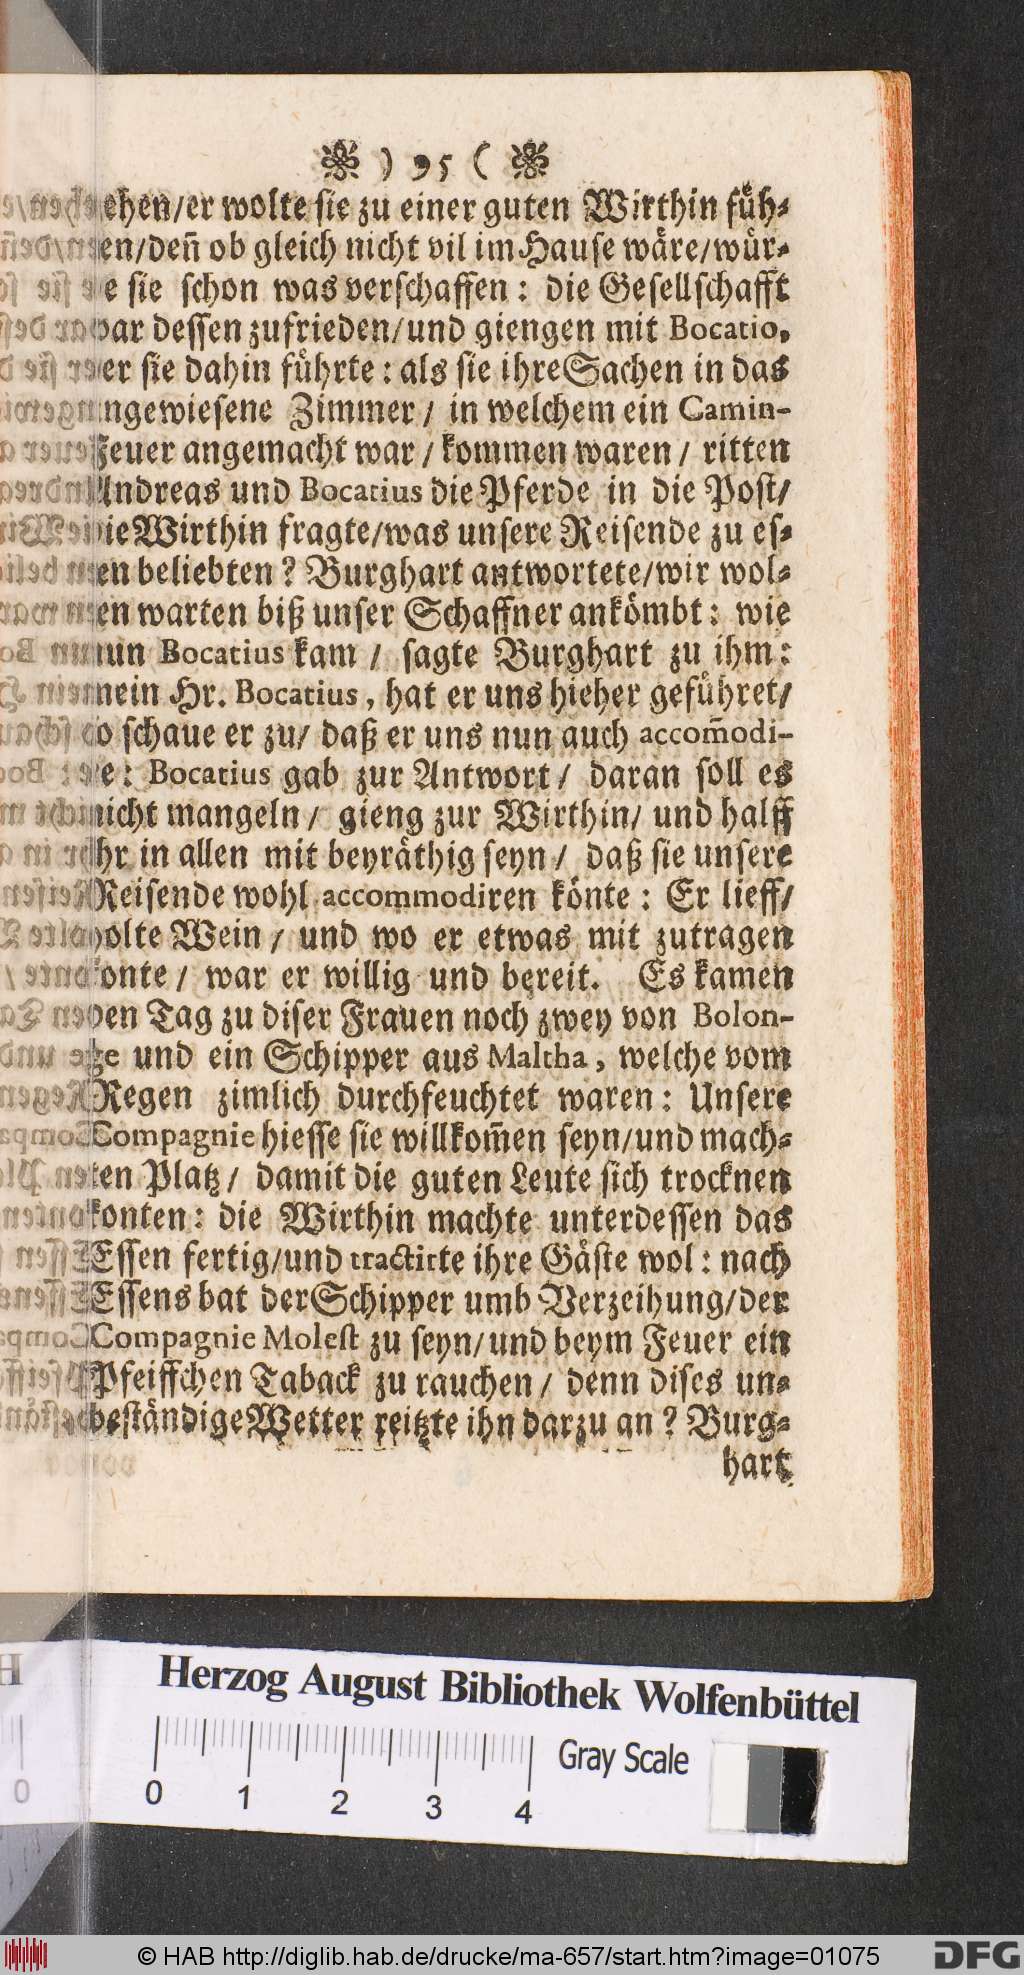 ) 95 (
ehen/er wolte sie zu einer guten Wirthin füh-
en/deñ ob gleich nicht vil im Hause wäre/wür-
e sie schon was verschaffen: die Gesellschafft
war dessen zufrieden/und giengen mit Bocatio,
er sie dahin führte: als sie ihre Sachen in das
ngewiesene Zimmer/ in welchem ein Camin-
Feuer angemacht war/ kommen waren/ ritten
Andreas und Bocatius die Pferde in die Post/
die Wirthin fragte/was unsere Reisende zu es-
en beliebten? Burghart antwortete/wir wol-
en warten biß unser Schaffner ankömbt: wie
nun Bocatius kam/ sagte Burghart zu ihm:
mein Hr. Bocatius, hat er uns hieher geführet/
so schaue er zu/ daß er uns nun auch accom̃odi-
e: Bocatius gab zur Antwort/ daran soll es
nicht mangeln/ gieng zur Wirthin/ und halff
ihr in allen mit beyräthig seyn/ daß sie unsere
Reisende wohl accommodiren könte: Er lieff/
holte Wein/ und wo er etwas mit zutragen
konte/ war er willig und bereit. Es kamen
den Tag zu diser Frauen noch zwey von Bolon-
ge und ein Schipper aus Maltha, welche vom
Regen zimlich durchfeuchtet waren: Unsere
Compagnie hiesse sie willkom̃en seyn/und mach-
ten Platz/ damit die guten Leute sich trocknen
konten: die Wirthin machte unterdessen das
Essen fertig/und tractirte ihre Gäste wol: nach
Essens bat der Schipper umb Verzeihung/der
Compagnie Molest zu seyn/und beym Feuer ein
Pfeiffchen Taback zu rauchen/ denn dises un-
beständige Wetter reitzte ihn darzu an? Burg-
hart
Herzog August Bibliothek Wolfenbüttel
0 1 2 3 4 Gray Scale
© HAB http://diglib.hab.de/drucke/ma-657/start.htm?image=01075
DFG